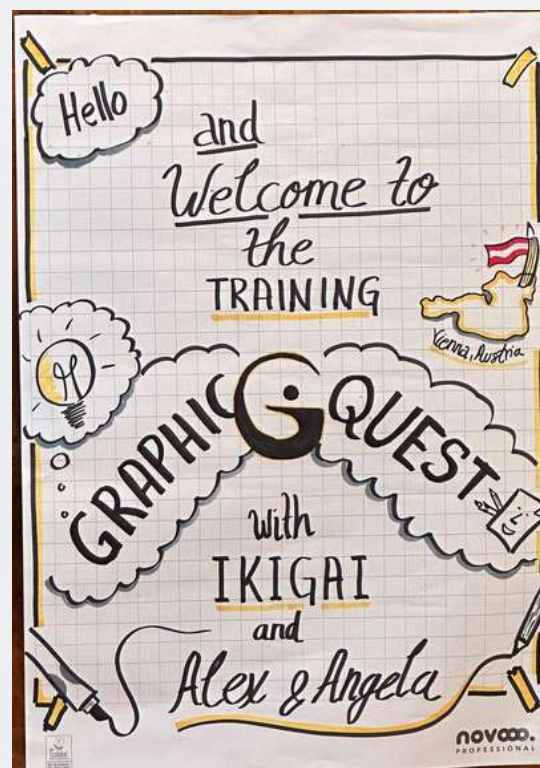 Hello
and
Welcome to
the
TRAINING
Vienna, Austria
GRAPHIC G QUEST
with
IKIGAI
and
Alex & Angela
novooo.
PROFESSIONAL